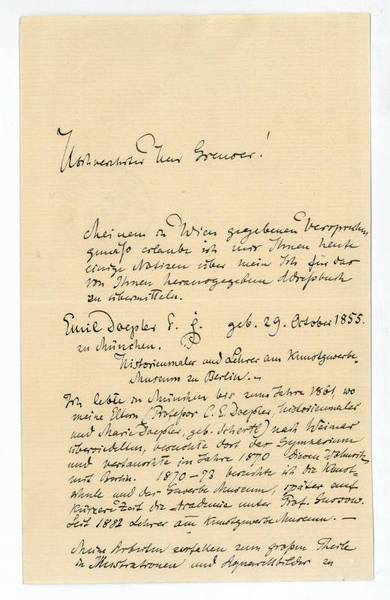 Hochverehrter Herr Grenser!
Meinem in Wien gegebenen Versprechen
gemäß erlaube ich mir Ihnen heute
einige Notizen über mein Ich für das
von Ihnen herausgegebene Adreßbuch
zu übermitteln.
Emil Doepler d. j. geb. 29. October 1855.
zu München.
Historienmaler und Lehrer am Kunstgewerbe-
Museum zu Berlin.—
Ich lebte in München bis zum Jahre 1861, wo
meine Eltern (Professor C. E. Doepler, Historienmaler
und Marie Doepler, geb. Schertl) nach Weimar
übersiedelten, besuchte dort das Gymnasium
und vertauschte im Jahre 1870 diesen Wohnsitz
mit Berlin. 1870–73 besuchte ich die Kunst-
schule und das Gewerbe Museum, später auf
kürzere Zeit die Academie unter Prof. Gussow.
Seit 1882 Lehrer am Kunstgewerbe Museum.—
Meine Arbeiten zerfallen zum großen Theile
in Illustrationen und Aquarellbilder zu